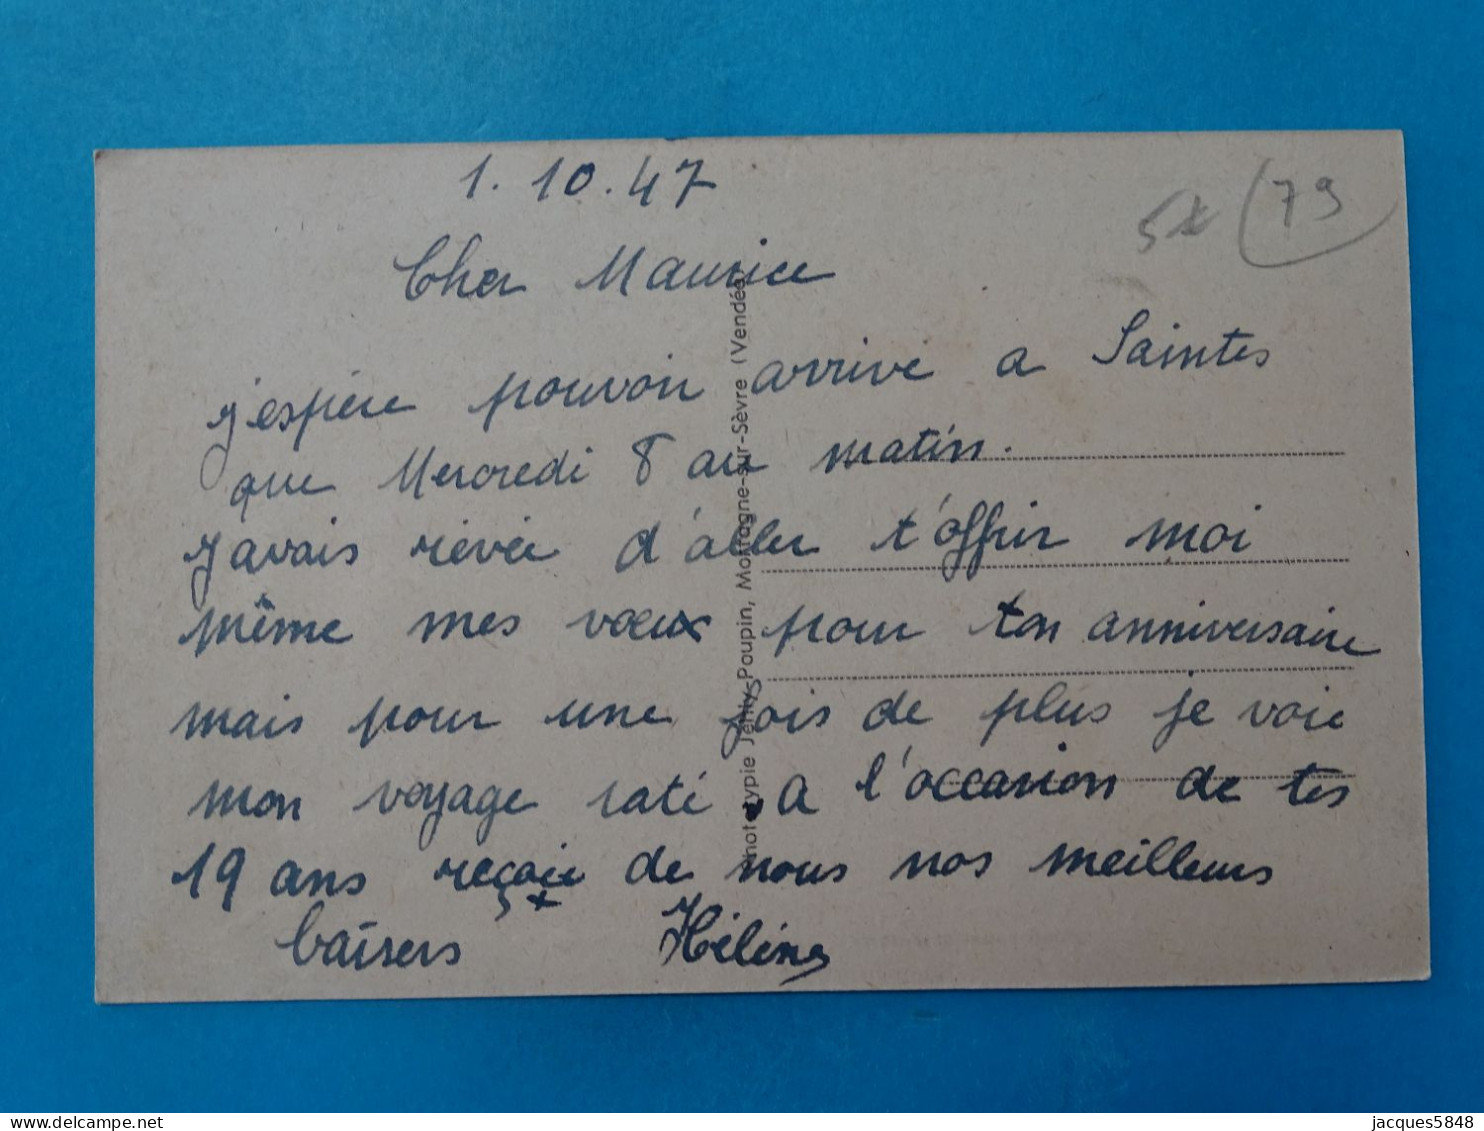 1.10.47
5x 79
Cher Maurice
j'espère pouvoir arrivé a Saintes
que Mercredi 8 au matin.
J'avais rêvée d'aller t'offrir moi
même mes vœux pour ton anniversaire
mais pour une fois de plus je voie
mon voyage raté. a l'occasion de tes
19 ans reçoie de nous nos meilleurs
baisers Hélène
Phototypie Jehly-Poupin, Mortagne-sur-Sèvre (Vendée)
jacques5848